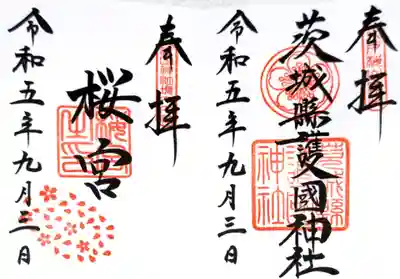 奉拝
茨城縣護國神社
令和五年九月三日
奉拝
桜宮
令和五年九月三日